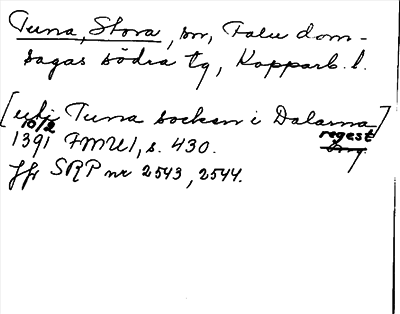 Tuna, Stora, sn, Falu dom-
sagas södra tg, Kopparb. l.
[uti Tuna socken i Dalarna]
10/2 regest
1391 FMU I, s. 430. orig.
Jfr SRP nr 2543, 2544.